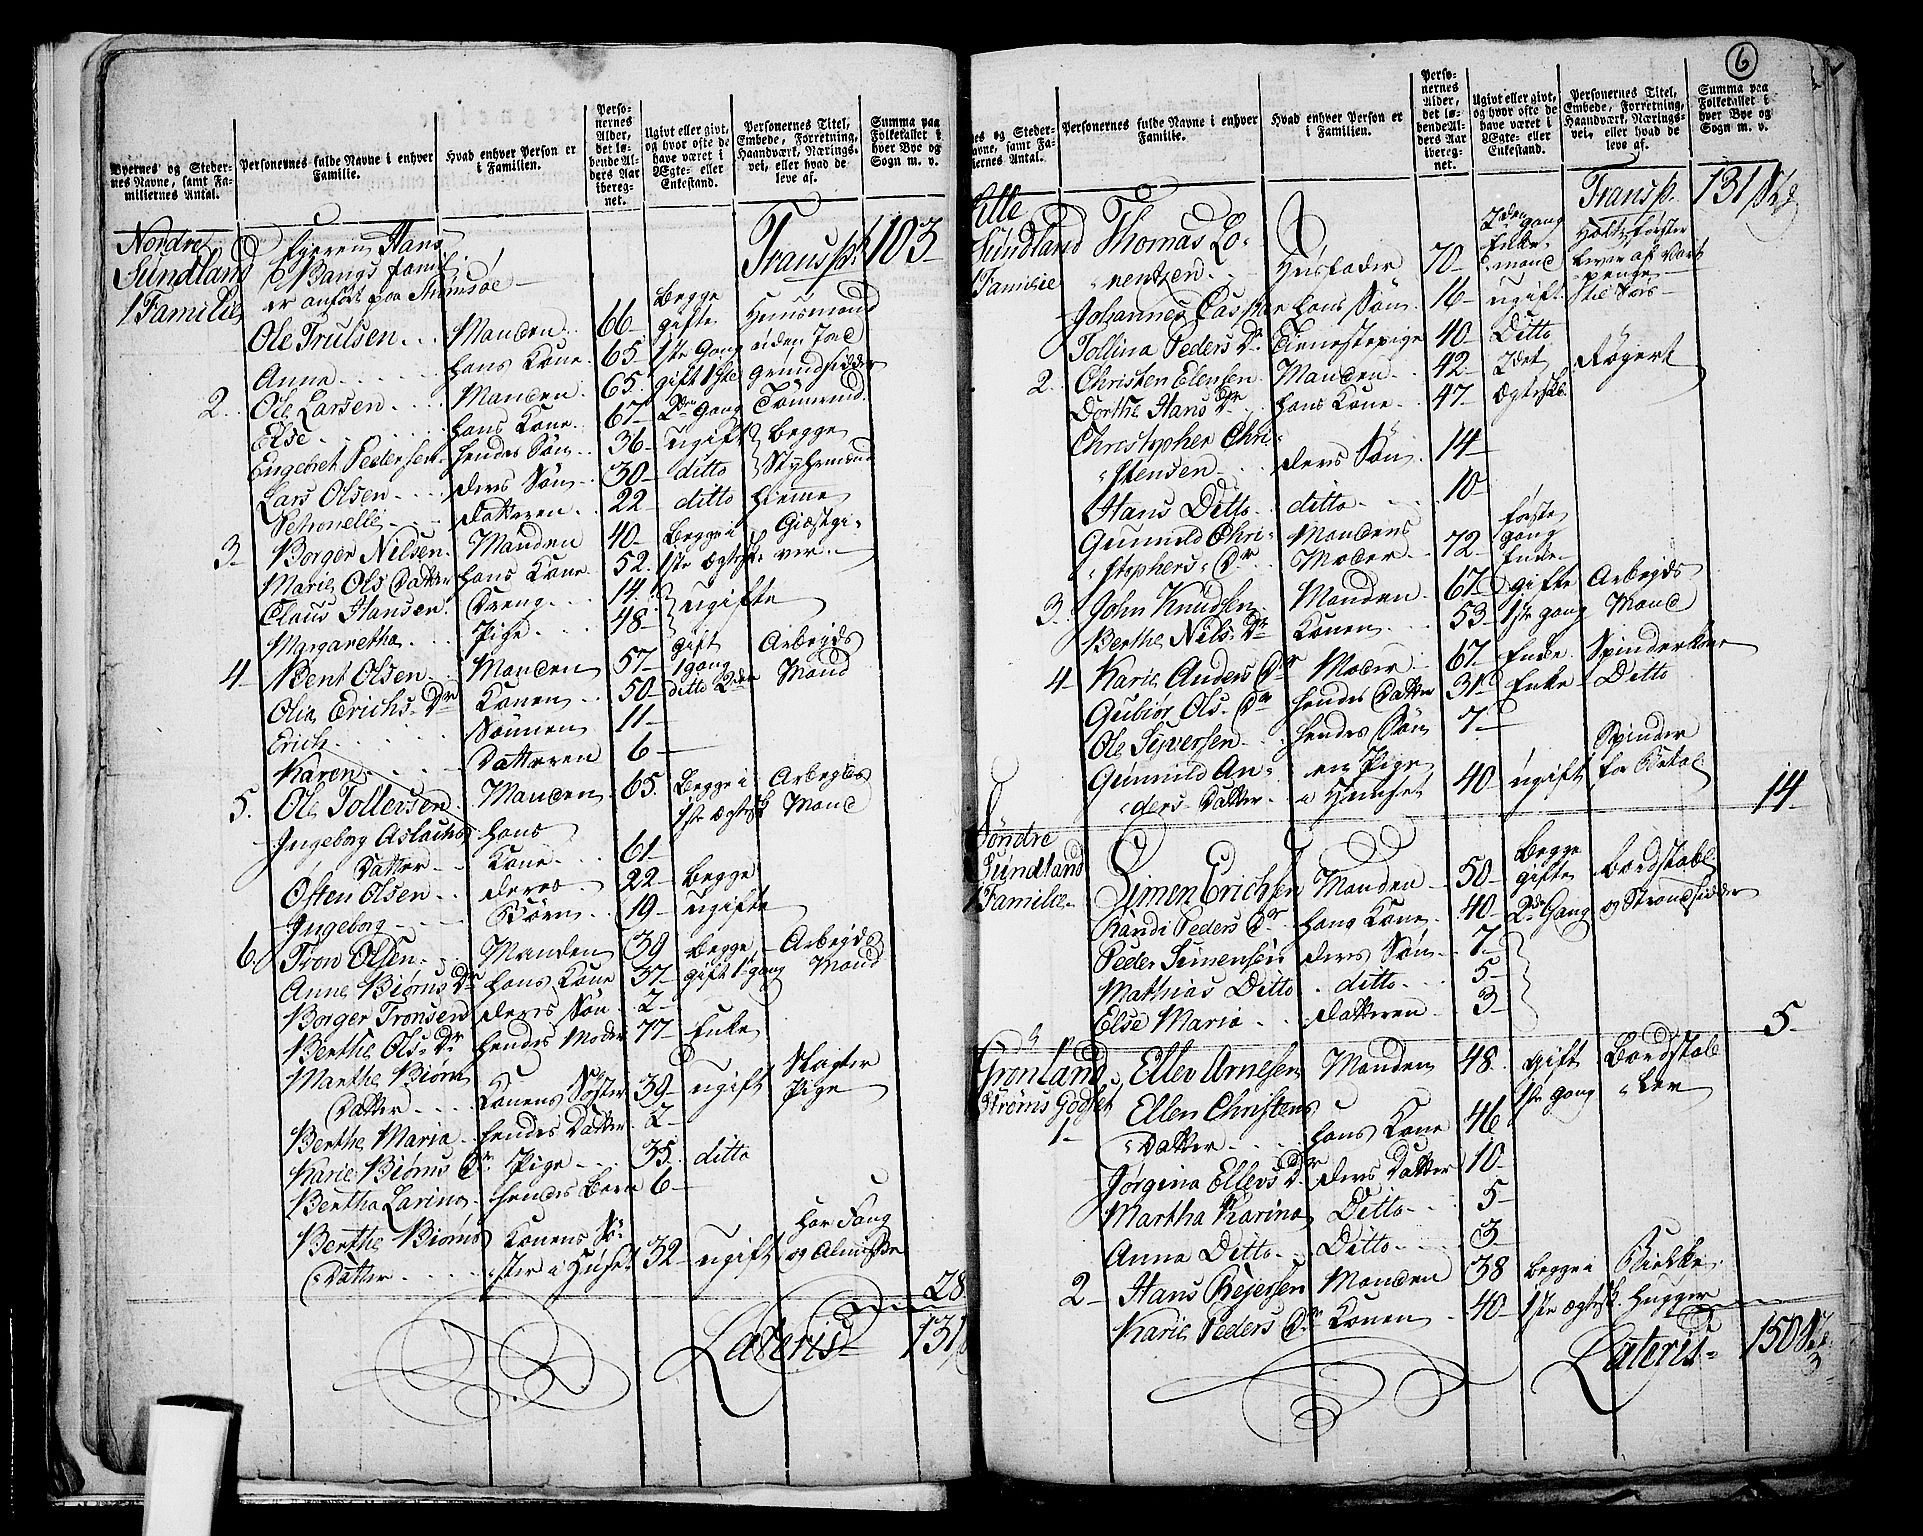 Byernes og Steder-
nes Navne, samt Fa-
miliernes Antal.
Personernes fulde Navne i enhver
Familie.
Hvad enhver Person er
i Familien.
Perso-
nernes
Alder,
det lø-
bende Al-
ders Aar
ibereg-
net.
Ugivt eller givt,
og hvor ofte de
have været i
Ægte- eller
Enkestand.
Personernes Titel,
Embede, Forretning,
Haandværk, Nærings-
vei, eller hvad de
leve af.
Summa paa
Folketallet i
hver Bye og
Sogn m. v.
Nordre Eyeren Hans
Sundland Bangs famil: Transp. 103
1 Familie er anført paa Strømsøe
Ole Trulsen Manden 66 Begge gifte Huusmand
Anna hans Kone 65 1ste Gang uden Jord
2 Ole Larsen Manden 65 gift 1ste
Else hans Kone 67 2den Gang
Engebret Pedersen hendes Søn 36 ugift begge
Lars Olsen deres Søn 30 ditto Styhrmænd
Petronelle Datteren 22 ditto hieme
3 Borger Nilsen Manden 40 Begge i Giæstgi-
Marie Ols Datter hans Kone 52 1ste Ægtesk. ver
Claus Hansen Dreng 14 ugifte
Margaretha Pige 48
4 Bent Olsen Manden 57 gift 1 gang Arbeyds
Olia Erichs Dr Konen 50 ditto 2den Mand
Erich Sønnen 11
Karen Datteren 6
5. Ole Tollevsen Manden 65 Begge i Arbeyds
1ste Ægtesk Mand
Ingeborg Aslachs hans
Datter Kone 61
Often Olsen deres 22 begge
Ingeborg Børn 19 ugifte
6. Tron Olsen Manden 39 begge Arbeyds
Anne Biørns Dr hans Kone 37 gift 1ste gang Mand
Borger Tronsen deres Søn 2
Berthe Ols Dr hendes Moder 77 Enke
Marthe Biørns
Datter Konens Søster 39 ugift Pige
Berthe Maria hendes Datter 2
Karie Biørns Dr Pige 35 ditto
Bertha Larina hendes Barn 6
Berthe Biørns Konens Sø-
Datter ster i Huset 32 ugift og Almisse
28
Lateris 131
6
Byernes og Steder-
nes Navne, samt Fa-
miliernes Antal.
Personernes fulde Navne i enhver
Familie.
Hvad enhver Person er
i Familien.
Perso-
nernes
Alder,
det lø-
bende Al-
ders Aar
ibereg-
net.
Ugivt eller givt,
og hvor ofte de
have været i
Ægte- eller
Enkestand.
Personernes Titel,
Embede, Forretning,
Haandværk, Nærings-
vei, eller hvad de
leve af.
Summa paa
Folketallet i
hver Bye og
Sogn m. v.
Transp. 131
Lille
Sundland Thomas Lo-
1 Familie rentzen Huusfader 70 2den gang Enke-mand
Johannes Casper hans Søn 16 ugift
Tollina Peders Dr Tienestepige 40 Ditto
2 Christen Elensen Manden 42 2det Røgert
Dorthe Hans Dr hans Kone 47 Ægtesk.
Christopher Chri-
stensen deres Søn 14
Hans Ditto ditto 10
Gunnild Chri- Mandens første gang
stophers Dr Moder 72 Enke
3 John Knudsen Manden 67 gifte Arbeyds
Berthe Nils Dr Konen 53 1ste gang Mand
4 Karie Anders Dr Moder 67 Enke Spinderkone
Gubiør Ols Dr hendes Datter 31 Enke Ditto
Ole Syversen hendes Søn 7
Gunnild An- en Pige Spinder
ders Datter i Huuset 40 ugift for Betal. 14
Søndre
Sundland Simen Erichsen Manden 50 Begge gifte Bordstabl.
1 Familie Randi Peders Dr hans Kone 40 2de Gang og Strandsidder
Peder Simensen deres Søn 7
Mathias Ditto ditto 5
Else Maria datteren 3
5
Grønland Ellev Arnesen Manden 48 gift Bordstab
Strøms Godset 1ste gang ler
1 Ellen Christens
Datter hans Kone 46
Jørgina Ellevs Dr deres Datter 10
Martha Karina Ditto 5
Anna Ditto Ditto 3
2 Hans Rejersen Manden 38 begge i
Karie Peders Dr Konen 40 1ste Ægtesk. Hugger
Lateris 150